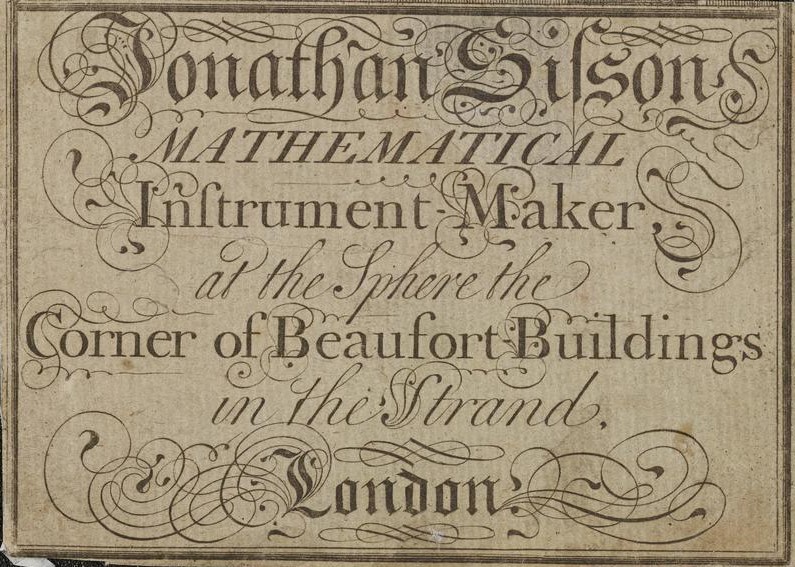 Jonathan Siſson
MATHEMATICAL
Inſtrument-Maker
at the Sphere the
Corner of Beaufort Buildings
in the Strand.
London.